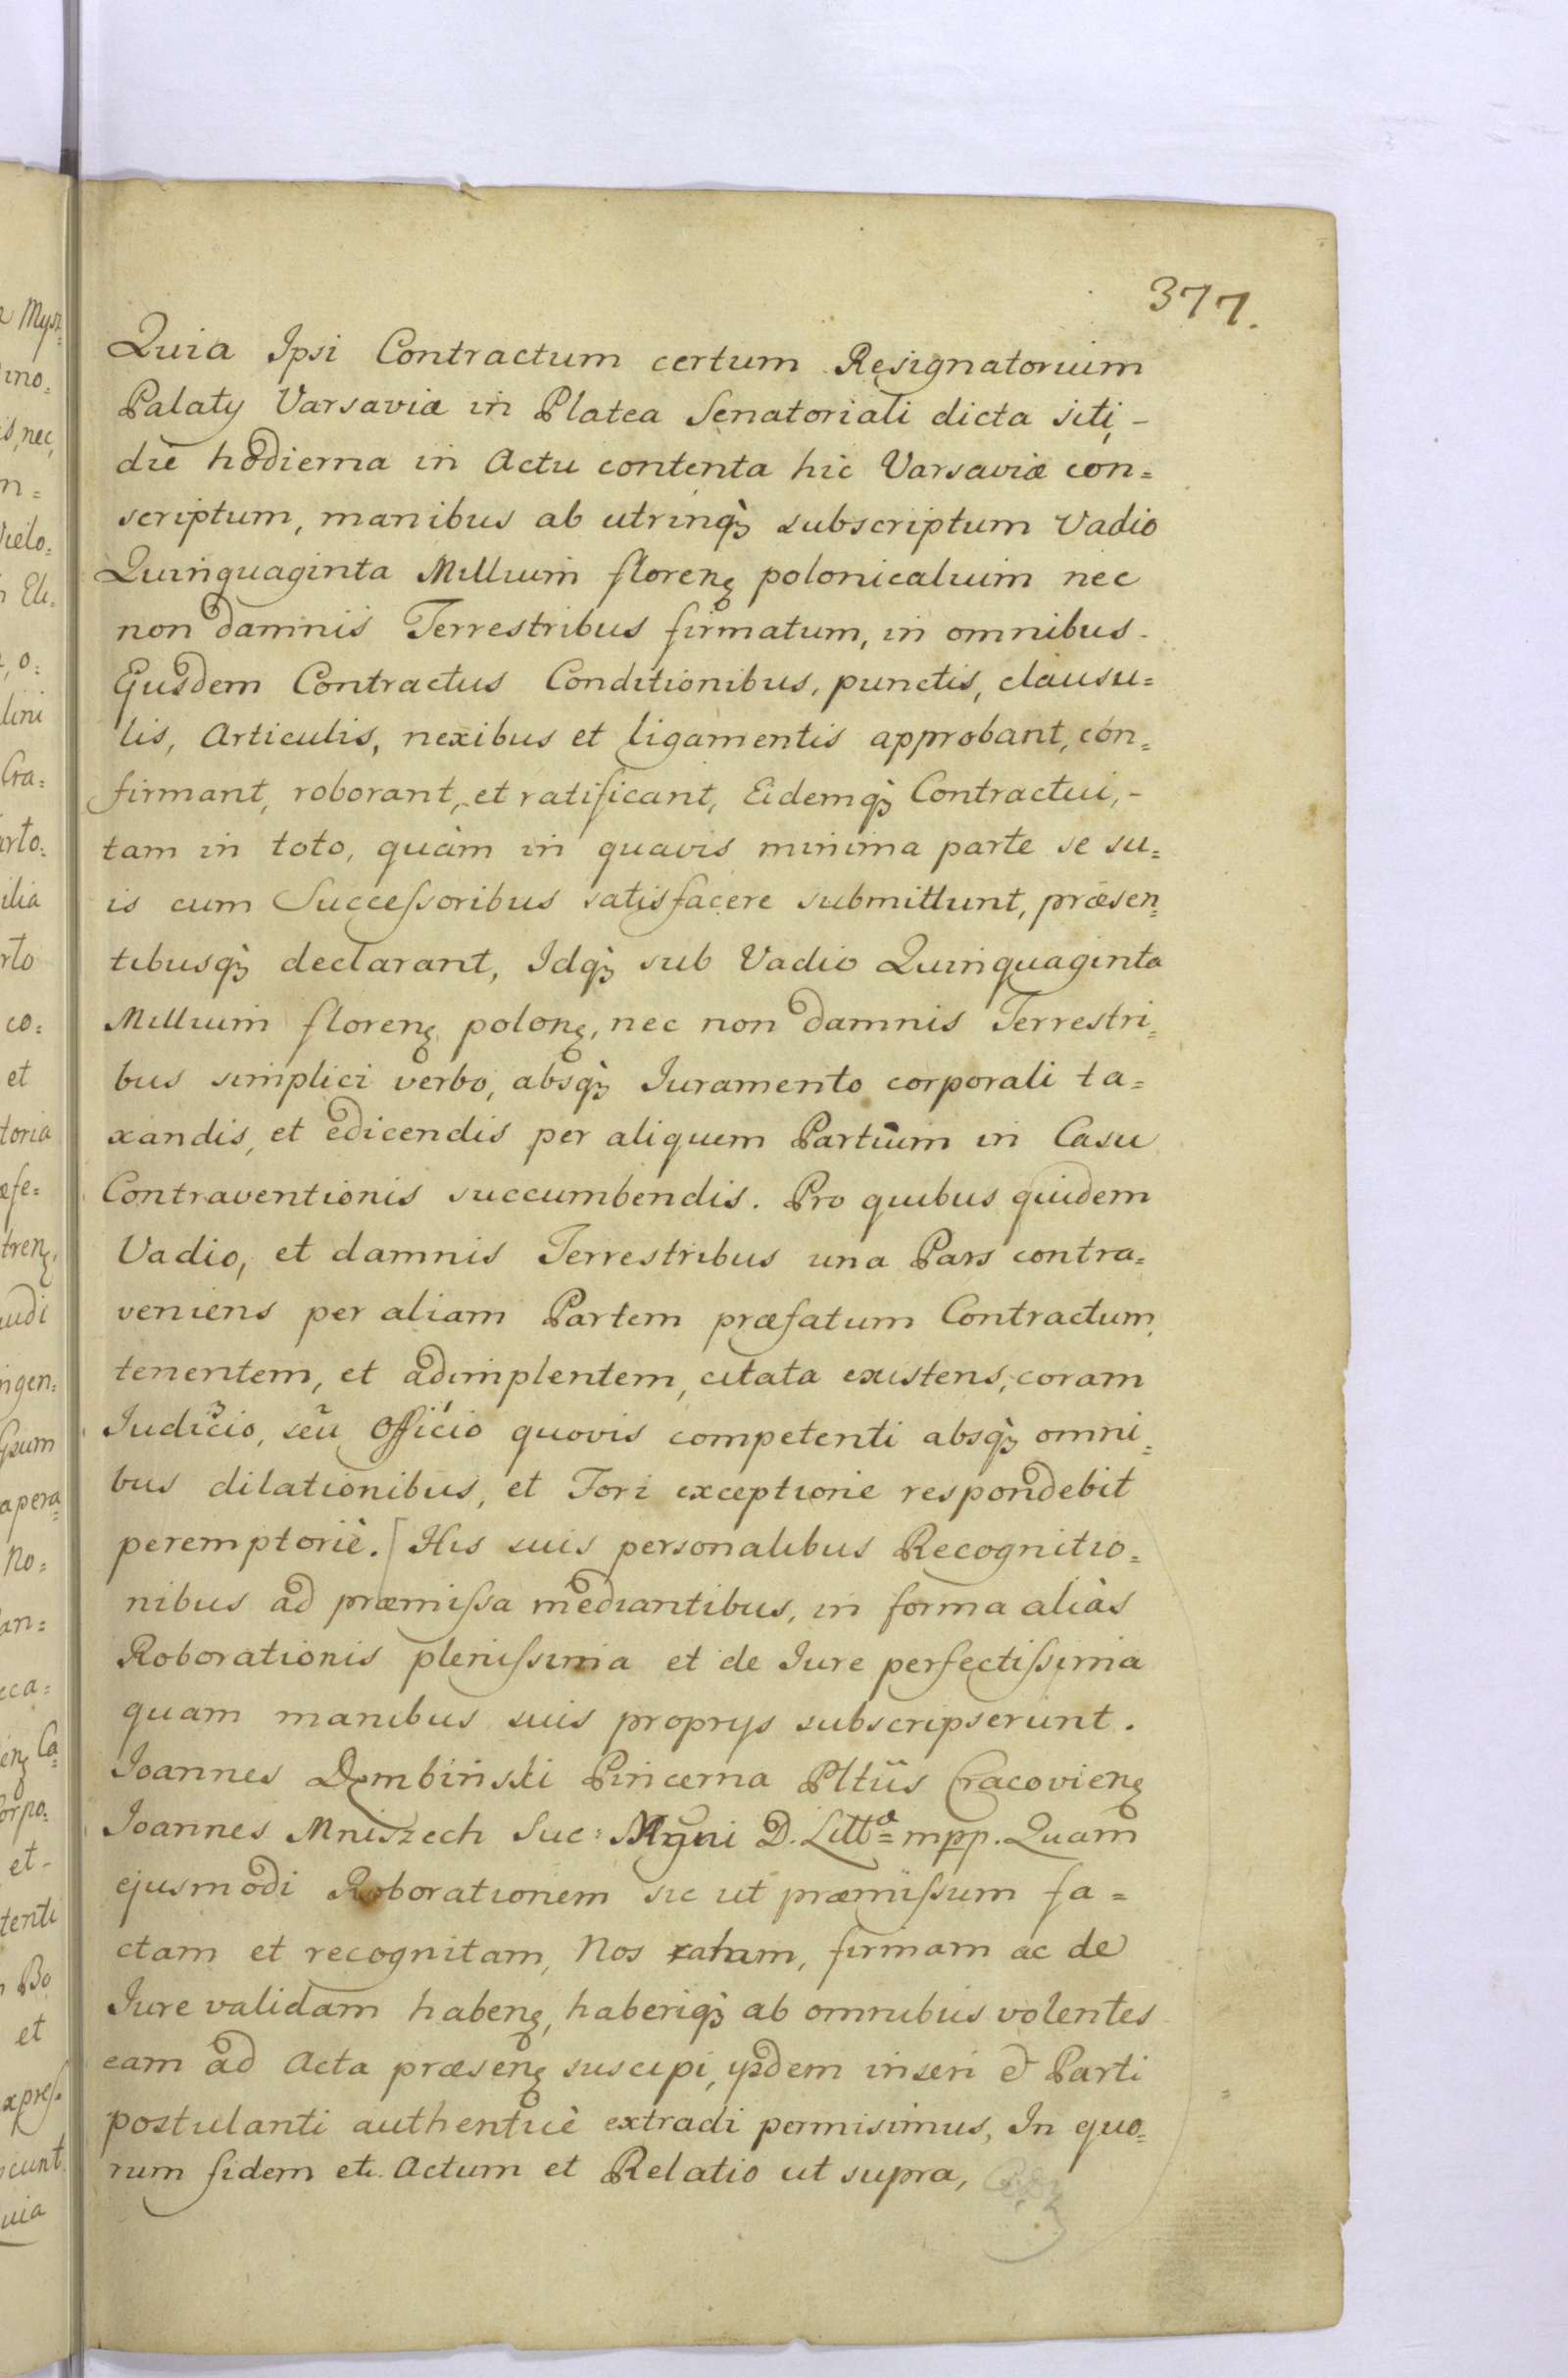 377.
Quia Ipsi Contractum certum Resignatorium
Palatÿ Varsaviæ in Platea Senatoriali dicta siti, -
die hodierna in Actu contenta hic Varsaviæ con=
scriptum, manibus ab utrinq̀ꝫ subscriptum Vadio
Quinquaginta Millium florenꝫ polonicalium nec
non damnis Terrestribus firmatum, in omnibus -
Ejusdem Contractus Conditionibus, punctis, clausu=
lis, Articulis, nexibus et ligamentis approbant, con=
firmant, roborant, et ratificant, Eidemq̀ꝫ Contractui, -
tam in toto, quàm in quavis minima parte se su=
is cum Succeſsoribus satisfacere submittunt, præsen=
tibusq̀ꝫ declarant, Idq̀ꝫ sub Vadio Quinquaginta
Millium florenꝫ polonꝫ, nec non damnis Terrestri=
bus simplici verbo, absq̀ꝫ Iuramento corporali ta=
xandis, et edicendis per aliquem Partium in Casu
Contraventionis succumbendis. Pro quibus quidem
Vadio, et damnis Terrestribus una Pars contra=
veniens per aliam Partem præfatum Contractum
tenentem, et adimplentem, citata existens, coram
Iudicio, seu Officio quovis competenti absq̀ꝫ omni=
bus dilationibus, et Fori exceptione respondebit
peremptoriè. [His suis personalibus Recognitio=
nibus ad præmiſsa mediantibus, in forma aliàs
Roborationis pleniſsima et de Iure perfectiſsima
quam manibus suis proprÿs subscripserunt.
Ioannes Dembiński Pincerna Pltüs Cracovienꝫ
Ioannes Mniszech Suc: Mgni D. Littᵃ= mpp. Quam
ejusmodi Roborationem sic ut præmiſsum fa=
ctam et recognitam, Nos ratam, firmam ac de
Iure validam habenꝫ, haberiq̀ꝫ ab omnibus volentes
eam ad Acta præsenꝫ suscipi, ÿsdem inseri et Parti
postulanti authenticè extradi permisimus, In quo=
rum fidem etc. Actum et Relatio ut supra,